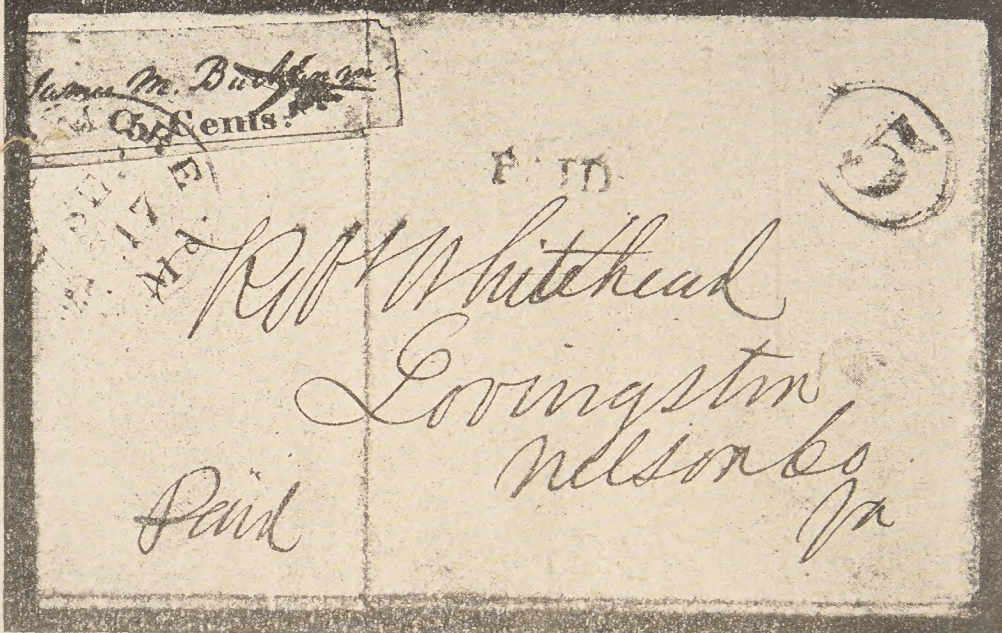 James M. Buchanan
5 Cents.
MORE
17
Md
PAID
5
Robt Whitehead
Lovingston
Nelson Co
Va
Paid